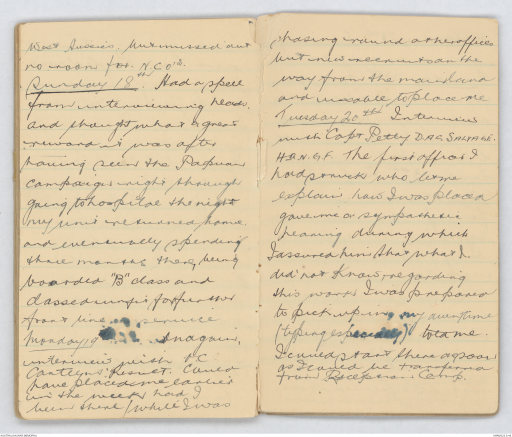 West Aussies. But missed out
no room for N.C.O's.
Sunday 18th Had a spell
from interviewing heads
and thought what a great
reward it was after
having seen the Papuan
campaign right through
going to hospital the night
my unit returned home
and eventually spending
three months there, being
boarded "B" class and
classed unfit for further
front line service
Monday 19 In again,
interview with O.C.
Canteens Result. Could
have placed me earlier
in the week had I
been there (while I was
chasing round other offices
but new recruits on the
way from the mainland
and unable to place me
Tuesday 20th Interview
with Capt Petty D.A.Q. SALVAGE.
H.Q.N.G.F. The first officer I
had struck who let me
explain how I was placed
gave me a sympathetic
hearing during which
I assured him that what I
did not know regarding
this work I was prepared
to pick up in my own time
(typing especially) told me
I could start there as soon
as I could be transferred
from Reception Camp.